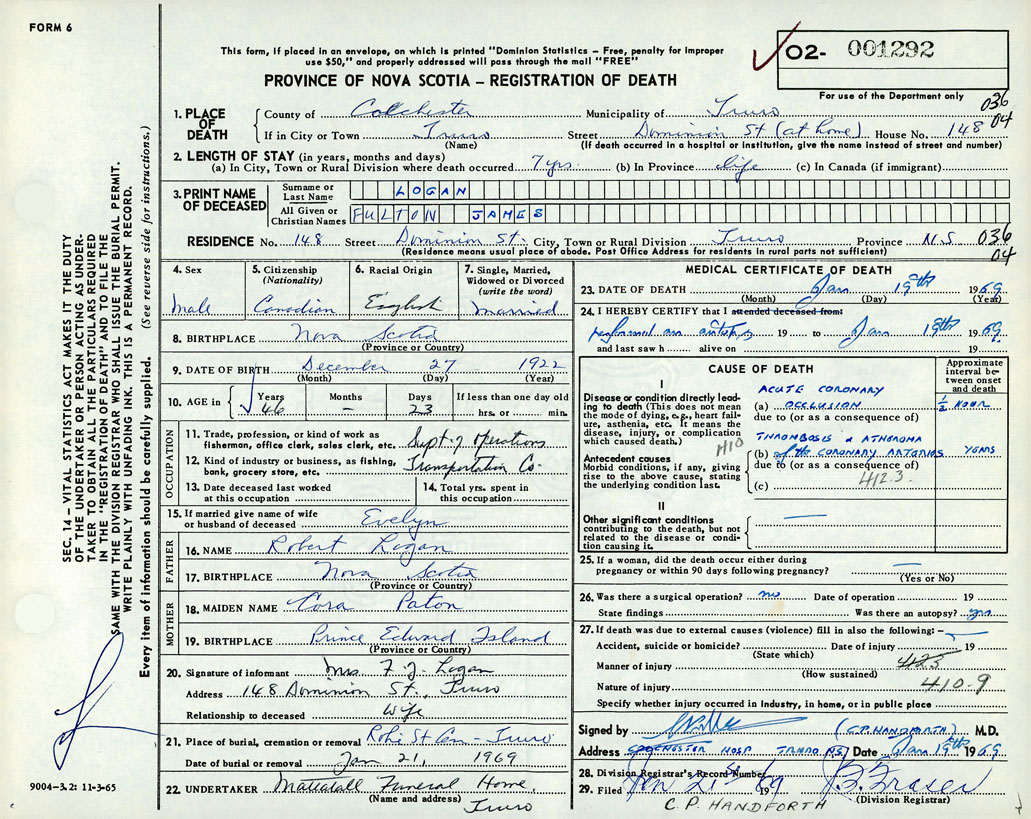 FORM 6
This form, if placed in an envelope, on which is printed "Dominion Statistics – Free, penalty for improper
use $50," and properly addressed will pass through the mail "FREE"
PROVINCE OF NOVA SCOTIA – REGISTRATION OF DEATH
02- 001292
For use of the Department only
036
04
1. PLACE OF DEATH
County of Colchester Municipality of Truro
If in City or Town Truro Street Dominion St (at home) House No. 148
(Name) (If death occurred in a hospital or institution, give the name instead of street and number)
2. LENGTH OF STAY (in years, months and days)
(a) In City, Town or Rural Division where death occurred 7 yrs. (b) In Province life (c) In Canada (if immigrant)
3. PRINT NAME OF DECEASED
Surname or Last Name LOGAN
All Given or Christian Names FULTON JAMES
RESIDENCE No. 148 Street Dominion St. City, Town or Rural Division Truro Province N.S. 036
(Residence means usual place of abode. Post Office Address for residents in rural parts not sufficient) 04
4. Sex
male
5. Citizenship
(Nationality)
Canadian
6. Racial Origin
English
7. Single, Married, Widowed or Divorced
(write the word)
married
8. BIRTHPLACE Nova Scotia
(Province or Country)
9. DATE OF BIRTH December 27 1922
(Month) (Day) (Year)
10. AGE in Years 46 Months – Days 23 If less than one day old hrs. or min.
OCCUPATION
11. Trade, profession, or kind of work as
fisherman, office clerk, sales clerk, etc. Supt. of operations
12. Kind of industry or business, as fishing,
bank, grocery store, etc. Transportation Co.
13. Date deceased last worked
at this occupation
14. Total yrs. spent in
this occupation
15. If married give name of wife
or husband of deceased Evelyn
FATHER
16. NAME Robert Logan
17. BIRTHPLACE Nova Scotia
(Province or Country)
MOTHER
18. MAIDEN NAME Cora Paton
19. BIRTHPLACE Prince Edward Island
(Province or Country)
20. Signature of informant Mrs. F. J. Logan
Address 148 Dominion St., Truro
Relationship to deceased wife
21. Place of burial, cremation or removal Robie St Cem - Truro
Date of burial or removal Jan 21, 1969
22. UNDERTAKER Mattatall Funeral Home,
(Name and address) Truro
MEDICAL CERTIFICATE OF DEATH
23. DATE OF DEATH Jan 19th 1969
(Month) (Day) (Year)
24. I HEREBY CERTIFY that I attended deceased from:
performed an autopsy 19 to Jan 19th 1969
and last saw h alive on 19
CAUSE OF DEATH
Approximate interval between onset and death
I
Disease or condition directly leading to death (This does not
mean the mode of dying, e.g., heart failure, asthenia, etc. It means the
disease, injury, or complication
which caused death.)
ACUTE CORONARY
(a) OCCLUSION ½ HOUR
due to (or as a consequence of)
410
THROMBOSIS & ATHEROMA
Antecedent causes
Morbid conditions, if any, giving
rise to the above cause, stating
the underlying condition last.
(b) of the CORONARY ARTERIES YEARS
due to (or as a consequence of)
412.3
(c)
II
Other significant conditions
contributing to the death, but not
related to the disease or condition causing it.
25. If a woman, did the death occur either during
pregnancy or within 90 days following pregnancy? —
(Yes or No)
26. Was there a surgical operation? no Date of operation 19
State findings Was there an autopsy? yes
27. If death was due to external causes (violence) fill in also the following:-
Accident, suicide or homicide? Date of injury 19
(State which)
Manner of injury 425
(How sustained)
Nature of injury 410.9
Specify whether injury occurred in industry, in home, or in public place
Signed by (C.P. HANDFORTH) M.D.
Address COLCHESTER HOSP TRURO N.S. Date Jan 19th 1969
28. Division Registrar's Record Number
29. Filed Jan 21st 1969 B. Fraser
(Division Registrar)
C.P. HANDFORTH
SEC. 14 – VITAL STATISTICS ACT MAKES IT THE DUTY
OF THE UNDERTAKER OR PERSON ACTING AS UNDERTAKER TO OBTAIN ALL THE PARTICULARS REQUIRED
IN THE "REGISTRATION OF DEATH" AND TO FILE THE
SAME WITH THE DIVISION REGISTRAR WHO SHALL ISSUE THE BURIAL PERMIT.
WRITE PLAINLY WITH UNFADING INK. THIS IS A PERMANENT RECORD.
Every item of information should be carefully supplied. (See reverse side for instructions.)
9004–3.2: 11-3-65